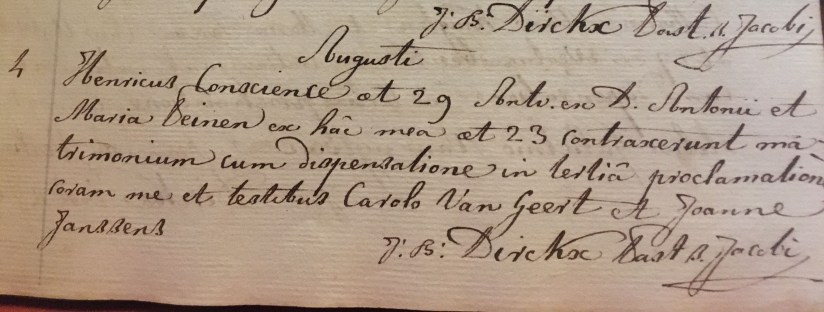 J: B: Dirckx Past. s. Jacobi
Augusti
4 Henricus Conscience æt 29 Antv. ex D. Antonii et
Maria Peinen ex hâc mea æt 23 contraxerunt ma
trimonium cum dispensatione in tertiâ proclamatione
coram me et testibus Carolo Van Geert et Joanne
Janssens
J: B: Dirckx Past s. Jacobi